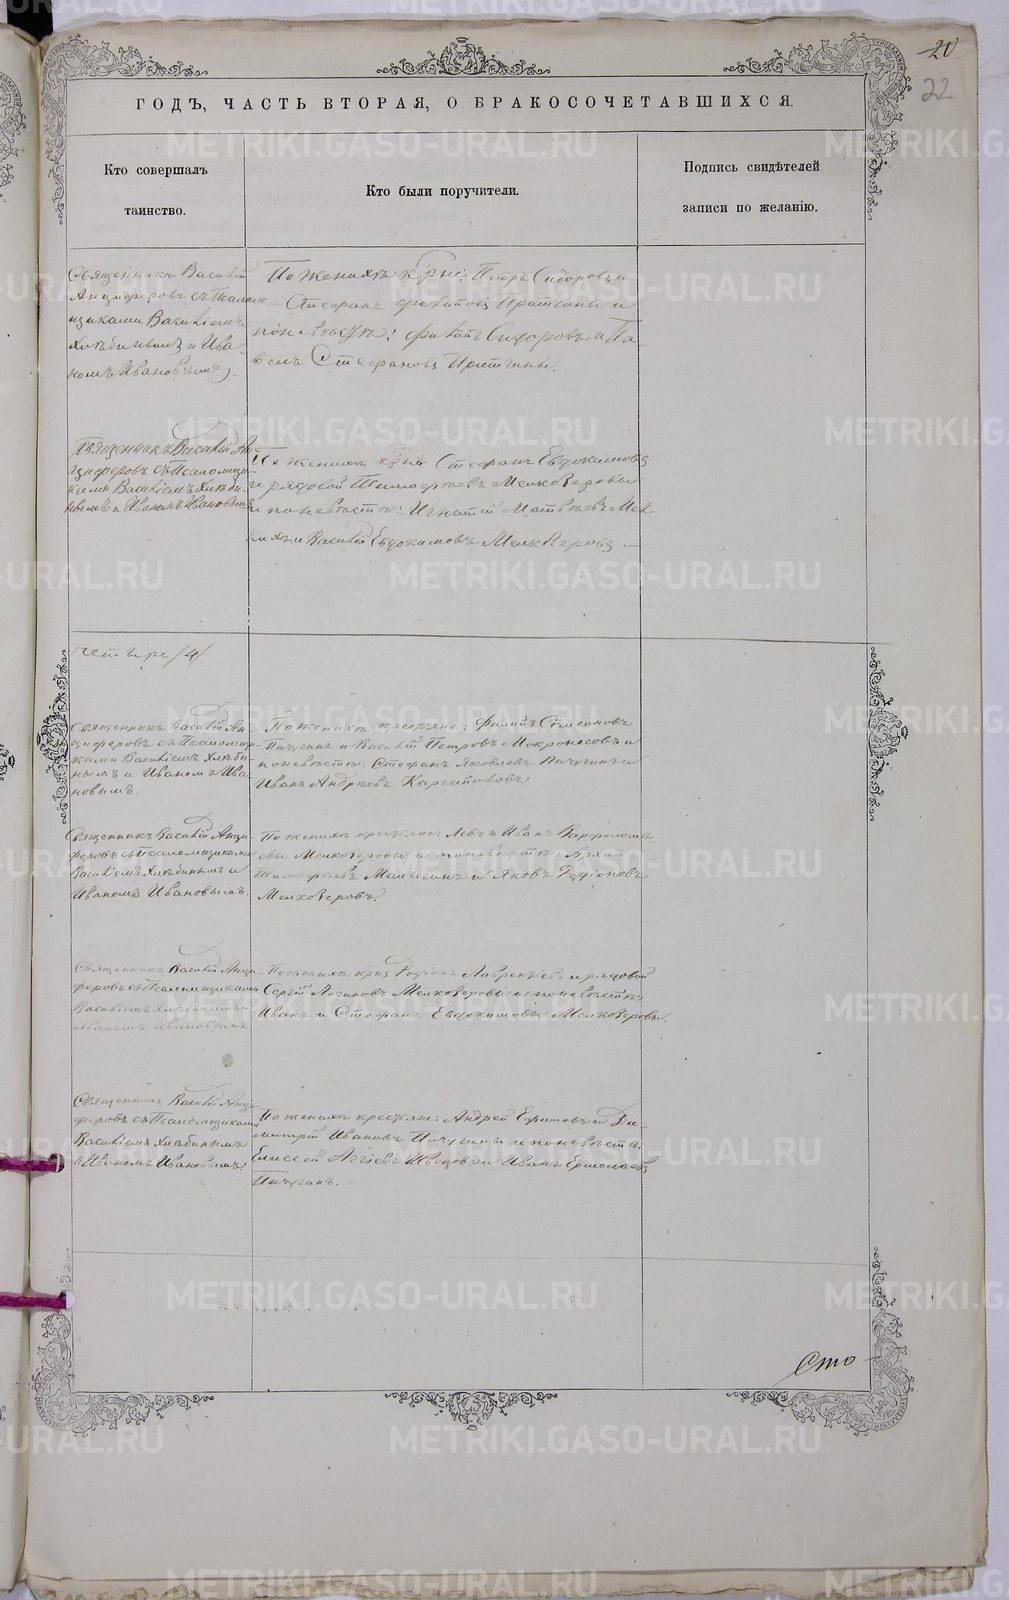 20
22
ГОДЪ, ЧАСТЬ ВТОРАЯ, О БРАКОСОЧЕТАВШИХСЯ.
Кто совершалъ
таинство.
Кто были поручители.
Подпись свидѣтелей
записи по желанію.
Священникъ Василій
Анциферовъ съ Псалом
щиками Василіемъ
Хлѣбинымъ и Ива
номъ Ивановымъ
По женихѣ Сидоровъ и
Стефанъ
по невѣстѣ: Сидоровъ и Па
велъ Стефановъ
Священникъ Василій Ан
циферовъ съ Псаломщи
ками Василіемъ Хлѣби
нымъ и Иваномъ Ивановымъ
По женихѣ Стефанъ Евдокимовъ
и рядовой Тимофѣевъ Мелкозеровы
и по невѣстѣ: Игнатій Матвѣевъ
и Василій Евдокимовъ Мелкозеровъ
четыре /4/.
Священникъ Василій Ан
циферовъ съ Псаломщи
ками Василіемъ Хлѣби
нымъ и Иваномъ Ива
новымъ.
По женихѣ крестьяне: Филипъ Симеоновъ
Пичугинъ и Василій Петровъ Мокроносовъ и
по невѣстѣ: Стефанъ Яковлевъ Пичугинъ и
Иванъ Андреевъ Каргаполовъ
Священникъ Василій Анци
феровъ съ Псаломщиками
Василіемъ Хлѣбинымъ и
Иваномъ Ивановымъ
По женихѣ крестьяне: Левъ и Иванъ Варфоломе
евы Мелкозеровы и по невѣстѣ
Тимофеевъ Малыгинъ и Яковъ Родіоновъ
Мелкозеровъ.
Священникъ Василій Анци
феровъ съ Псаломщиками
Василіемъ Хлѣбинымъ и
Иваномъ Ивановымъ
По женихѣ Родіонъ Лаврентіевъ и рядовой
Сергій Логиновъ Мелкозеровы и по невѣстѣ
Иванъ и Стефанъ Евдокимовы Мелкозеровы
Священникъ Василій Анци
феровъ съ Псаломщиками
Василіемъ Хлѣбинымъ
и Иваномъ Ивановымъ
По женихѣ крестьяне: Андрей Ефимовъ и Ди
митрій Ивановъ Пичугины и по невѣстѣ
Елисей Аггіевъ Швецовъ и Иванъ Ермолаевъ
Пичугинъ.
Сто
METRIKI.GASO-URAL.RU